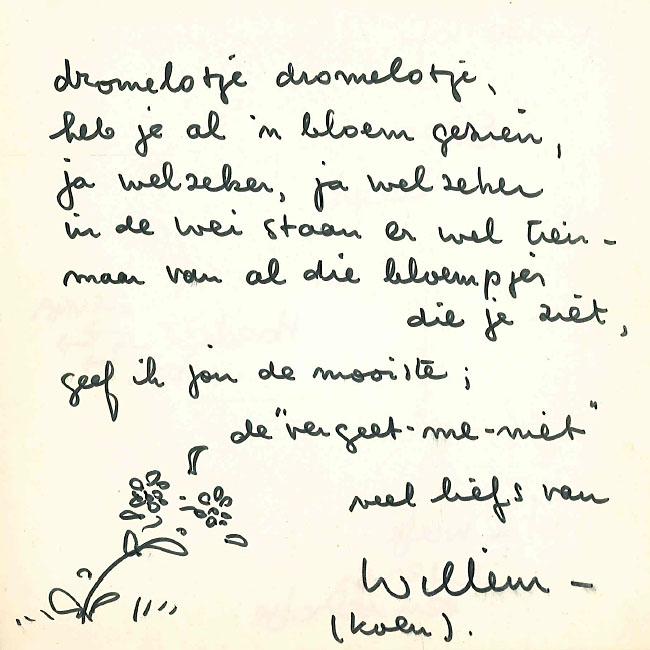 dromelotje dromelotje,
heb je al 'n bloem gezien,
ja welzeker, ja welzeker
in de wei staan er wel tien -
maar van al die bloempjes
die je ziet,
geef ik jou de mooiste ;
de "vergeet-me-niet"
veel liefs van
Willem -
(koen).